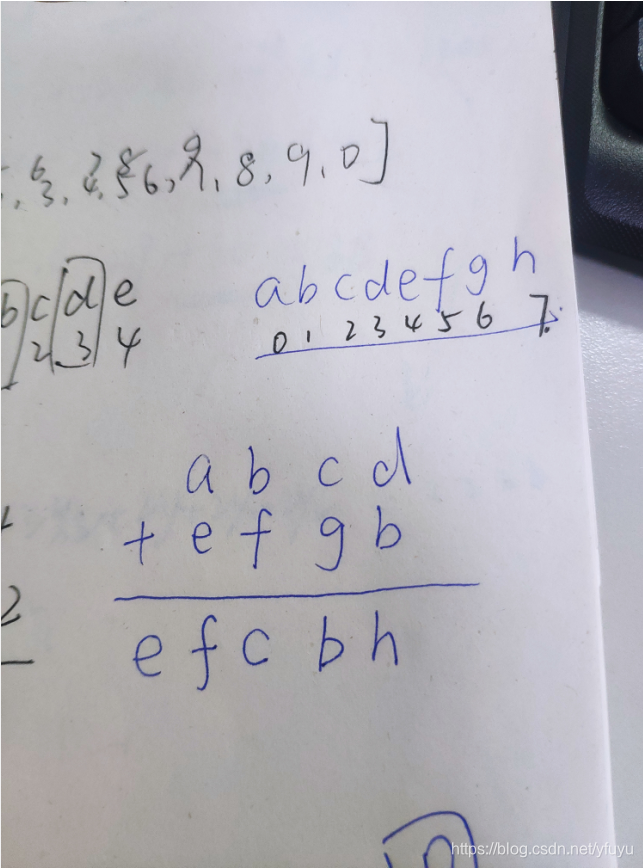 8, 9, 0]
b c d e
2 3 4
a b c d e f g h
0 1 2 3 4 5 6 7
a b c d
+ e f g b
2
e f c b h
n
https://blog.csdn.net/yfuyu